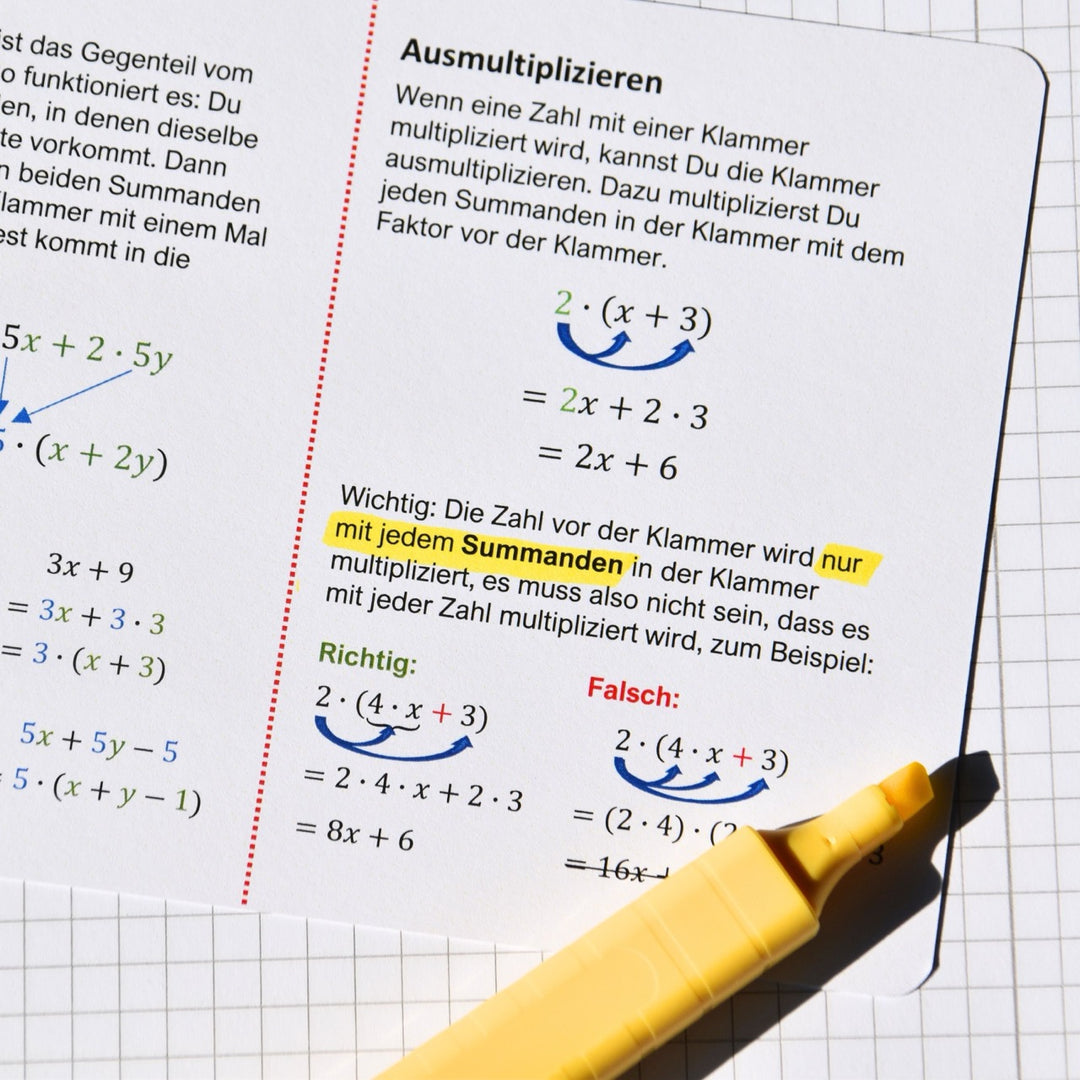 ist das Gegenteil vom
o funktioniert es: Du
en, in denen dieselbe
te vorkommt. Dann
n beiden Summanden
lammer mit einem Mal
est kommt in die
5x + 2 · 5y
· (x + 2y)
3x + 9
= 3x + 3 · 3
= 3 · (x + 3)
5x + 5y − 5
5 · (x + y − 1)
Ausmultiplizieren
Wenn eine Zahl mit einer Klammer
multipliziert wird, kannst Du die Klammer
ausmultiplizieren. Dazu multiplizierst Du
jeden Summanden in der Klammer mit dem
Faktor vor der Klammer.
2 · (x + 3)
= 2x + 2 · 3
= 2x + 6
Wichtig: Die Zahl vor der Klammer wird nur
mit jedem Summanden in der Klammer
multipliziert, es muss also nicht sein, dass es
mit jeder Zahl multipliziert wird, zum Beispiel:
Richtig:
2 · (4 · x + 3)
= 2 · 4 · x + 2 · 3
= 8x + 6
Falsch:
2 · (4 · x + 3)
= (2 · 4) · (2 3
= 16x +